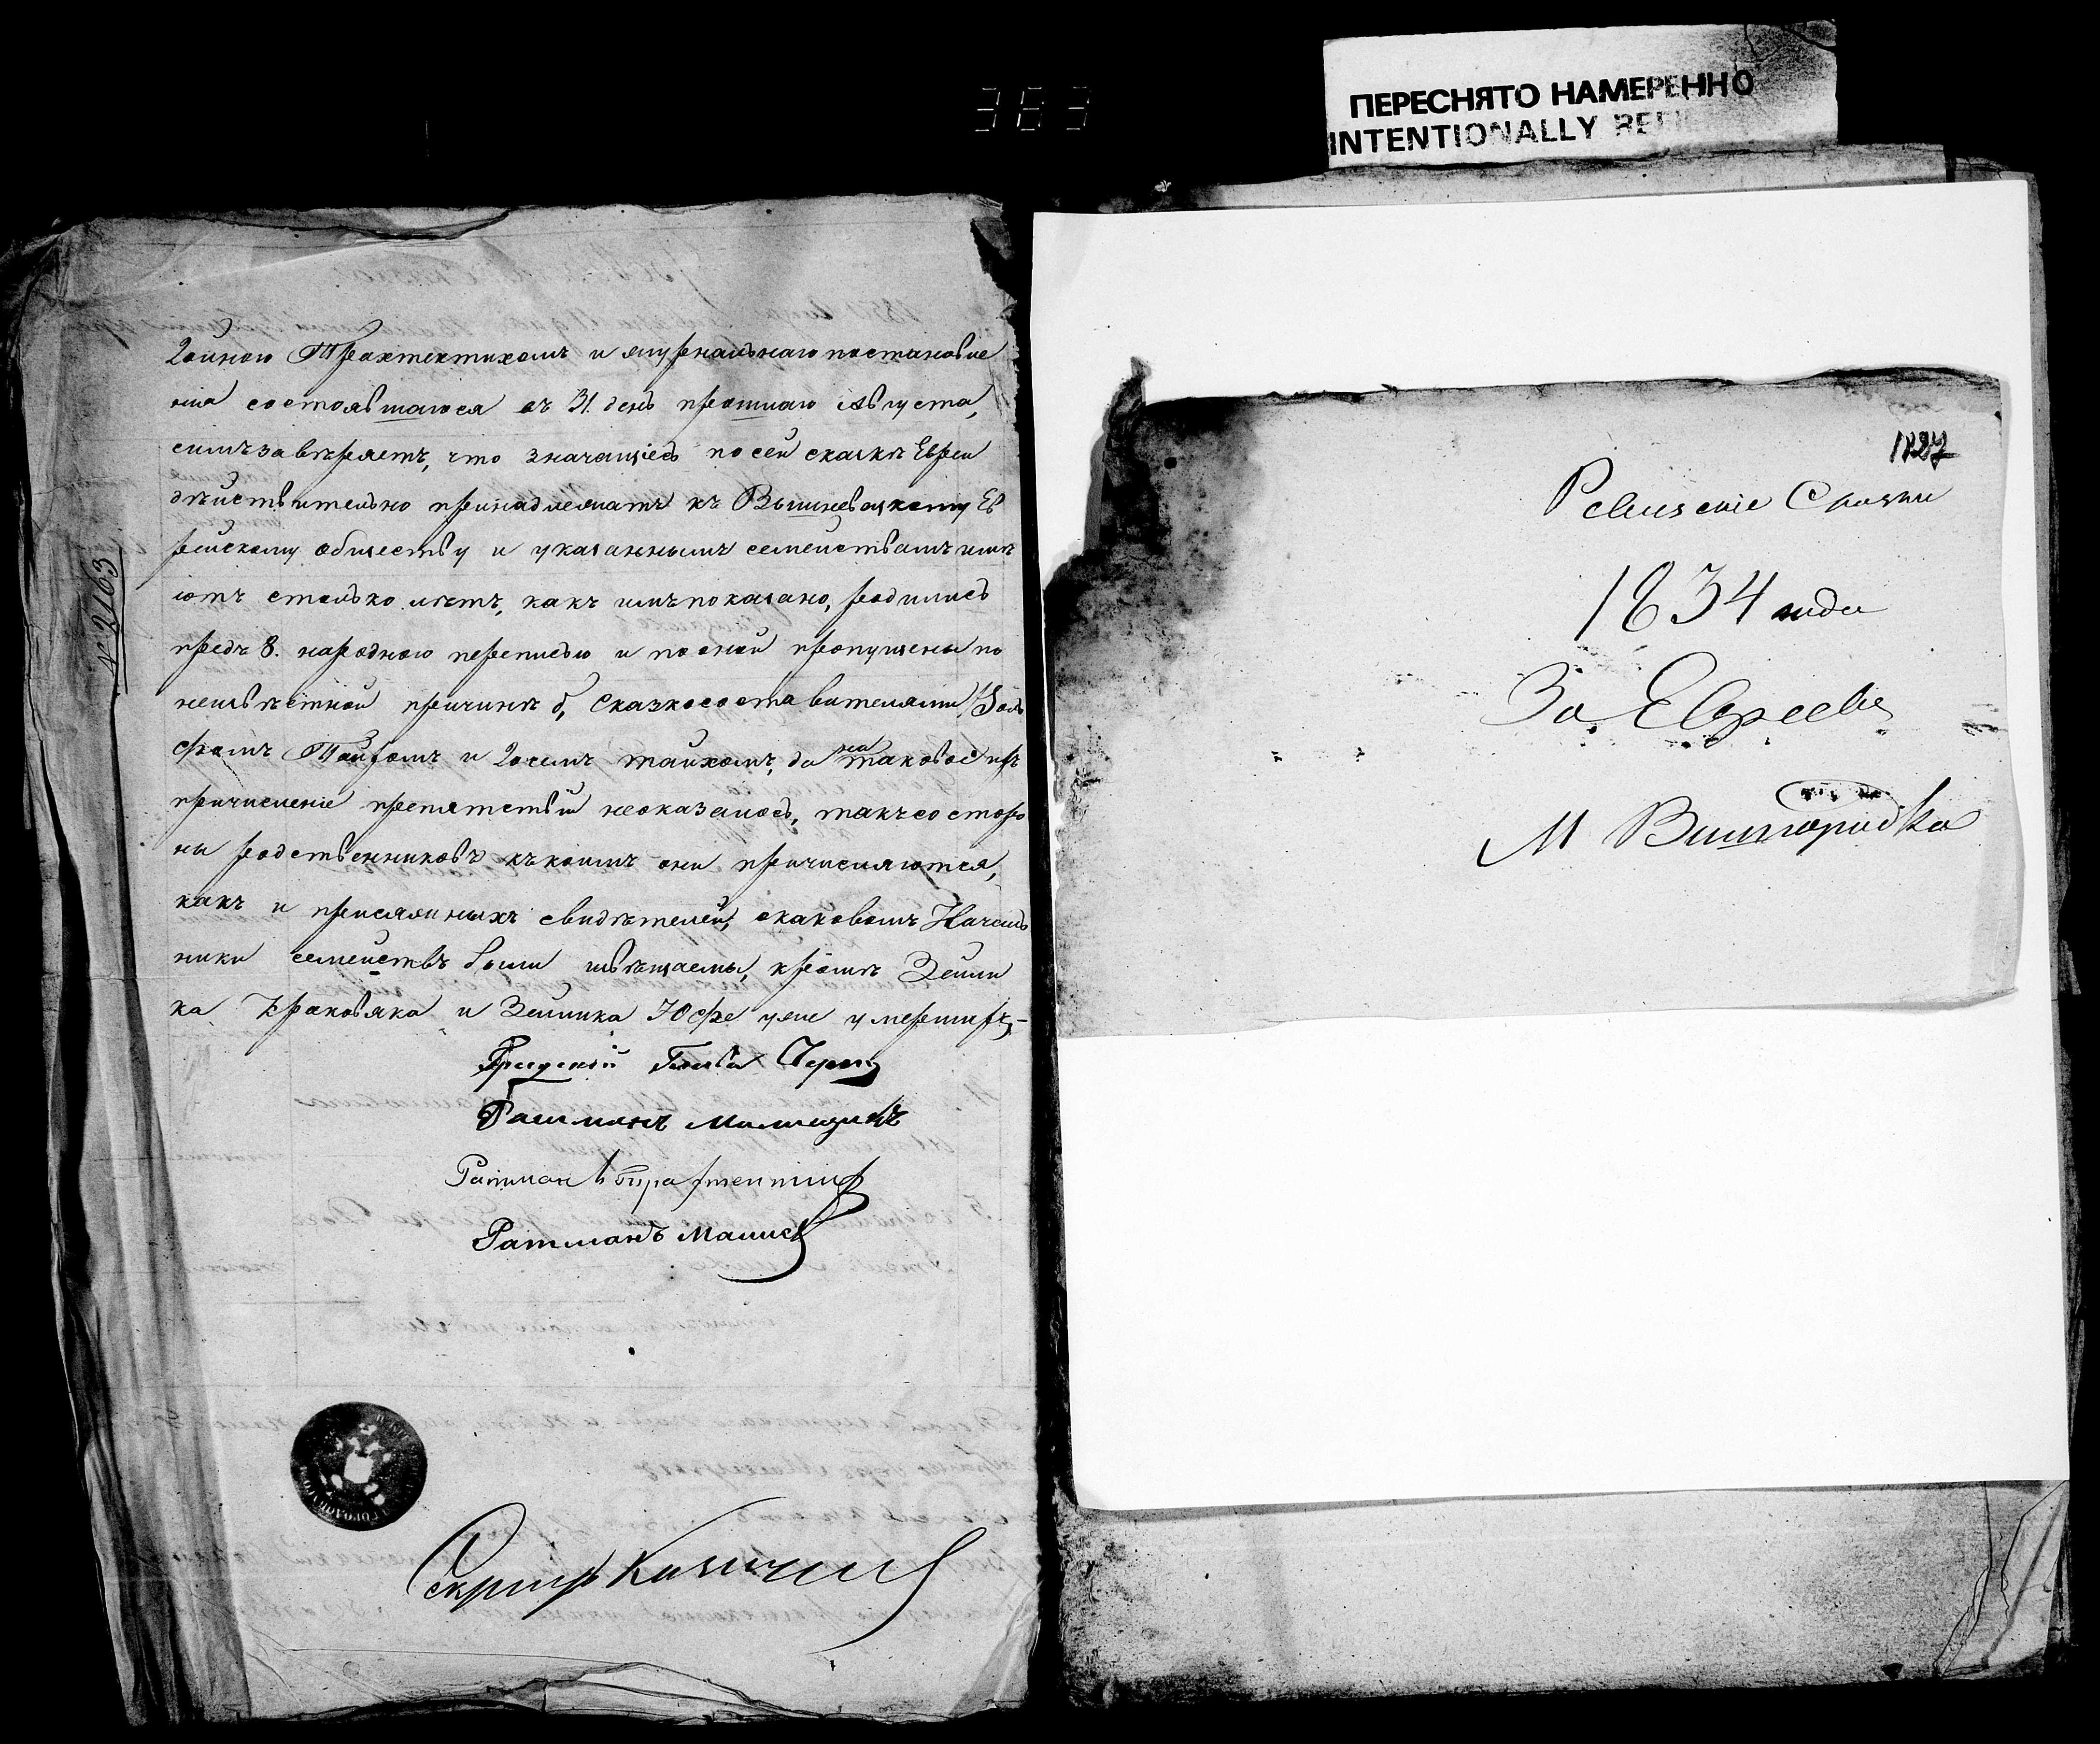 363
ПЕРЕСНЯТО НАМЕРЕННО
INTENTIONALLY REFI
и журнальнаго постановле
нія состоявшагося въ 31. день прошлаго Августа,
симъ заверяетъ, что значащіесь по сей сказкѣ Евреи
дѣйствительно принадлежатъ къ Вышневецкому Ев
рейскому обществу и указаннымъ семействамъ имѣ
ютъ столько лѣтъ, какъ имъ показано, родились
предъ 8. народною переписью и по оной пропущены по
неизвѣстной причинѣ б, Сказкосоставителями Воль
фомъ и на таковое ихъ
причисленіе препятствій неоказалось, какъ со сторо
ны родственниковъ къ коимъ они причисляются,
какъ и присяжныхъ свидѣтелей, о каковомъ Началь
ники семействъ были извѣщаемы, кромѣ Зейли
ка Краковяка и Зейлика Юфе уже умершихъ,-
Градскій Глава
Ратманъ
Ратман
Ратманъ
№ 2163
Секретарь
1827
Ревизскіе Сказки
1834 года
За Евреевъ
М Вишгородка